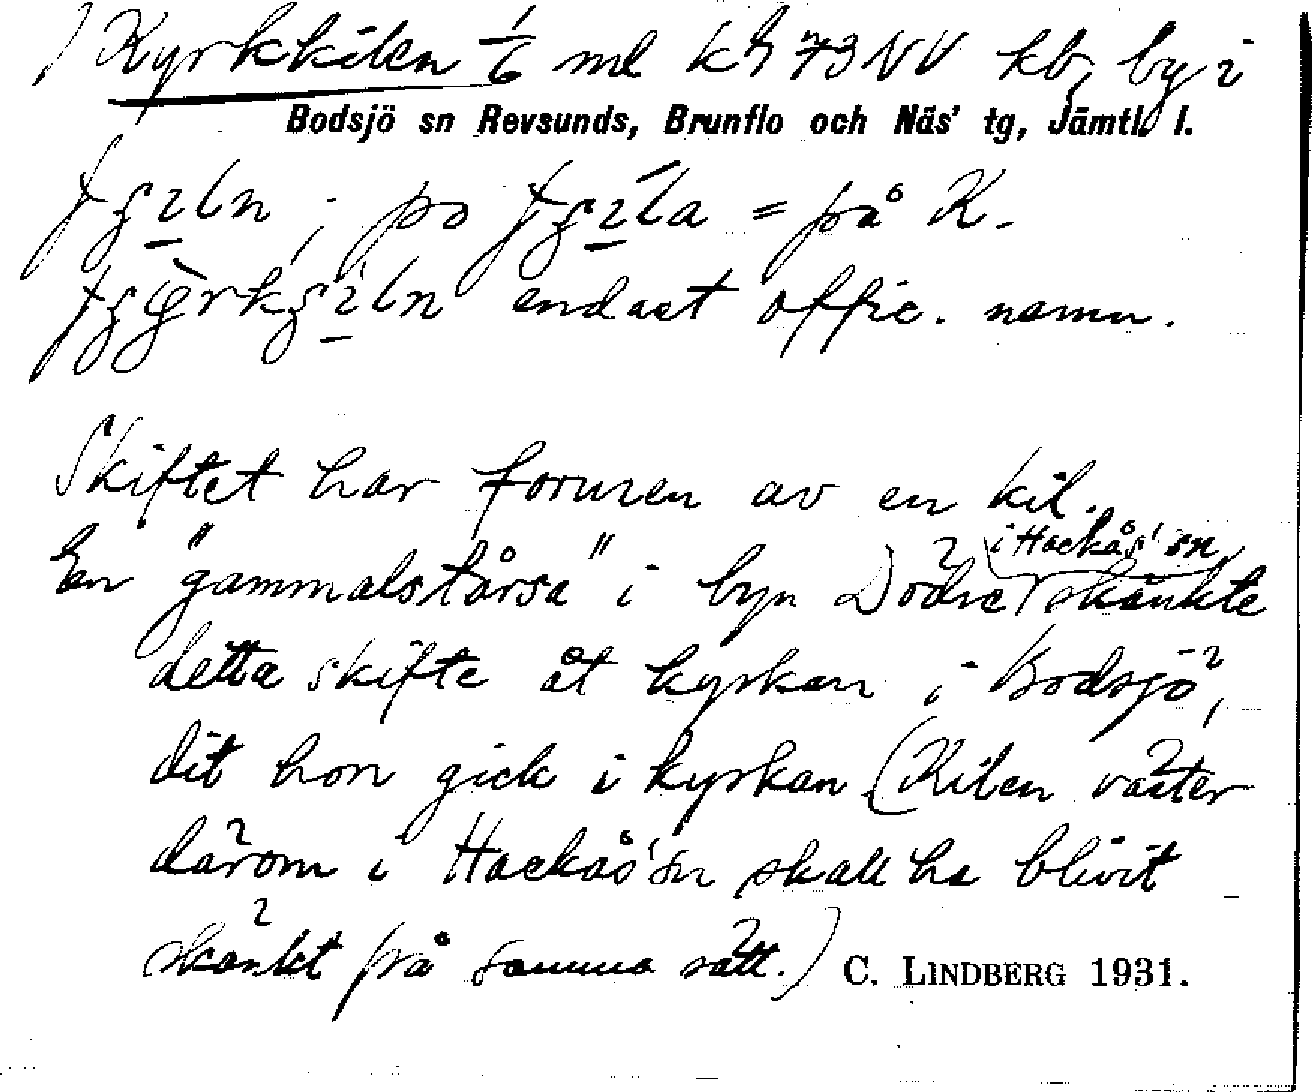 Kyrkkilen 1/6 ml kh 73 NV kb, by i
Bodsjö sn Revsunds, Brunflo och Näs' tg, Jämtl. l.
på K.
endast offic. namn.
Skiftet har formen av en kil.
En "gammalstårsa" i byn Dödre i Hackås' sn skänkte
detta skifte åt kyrkan i Bodsjö,
dit hon gick i kyrkan. (Kilen väster
därom i Hackås' sn skall ha blivit
skänkt på samma sätt.) C. LINDBERG 1931.